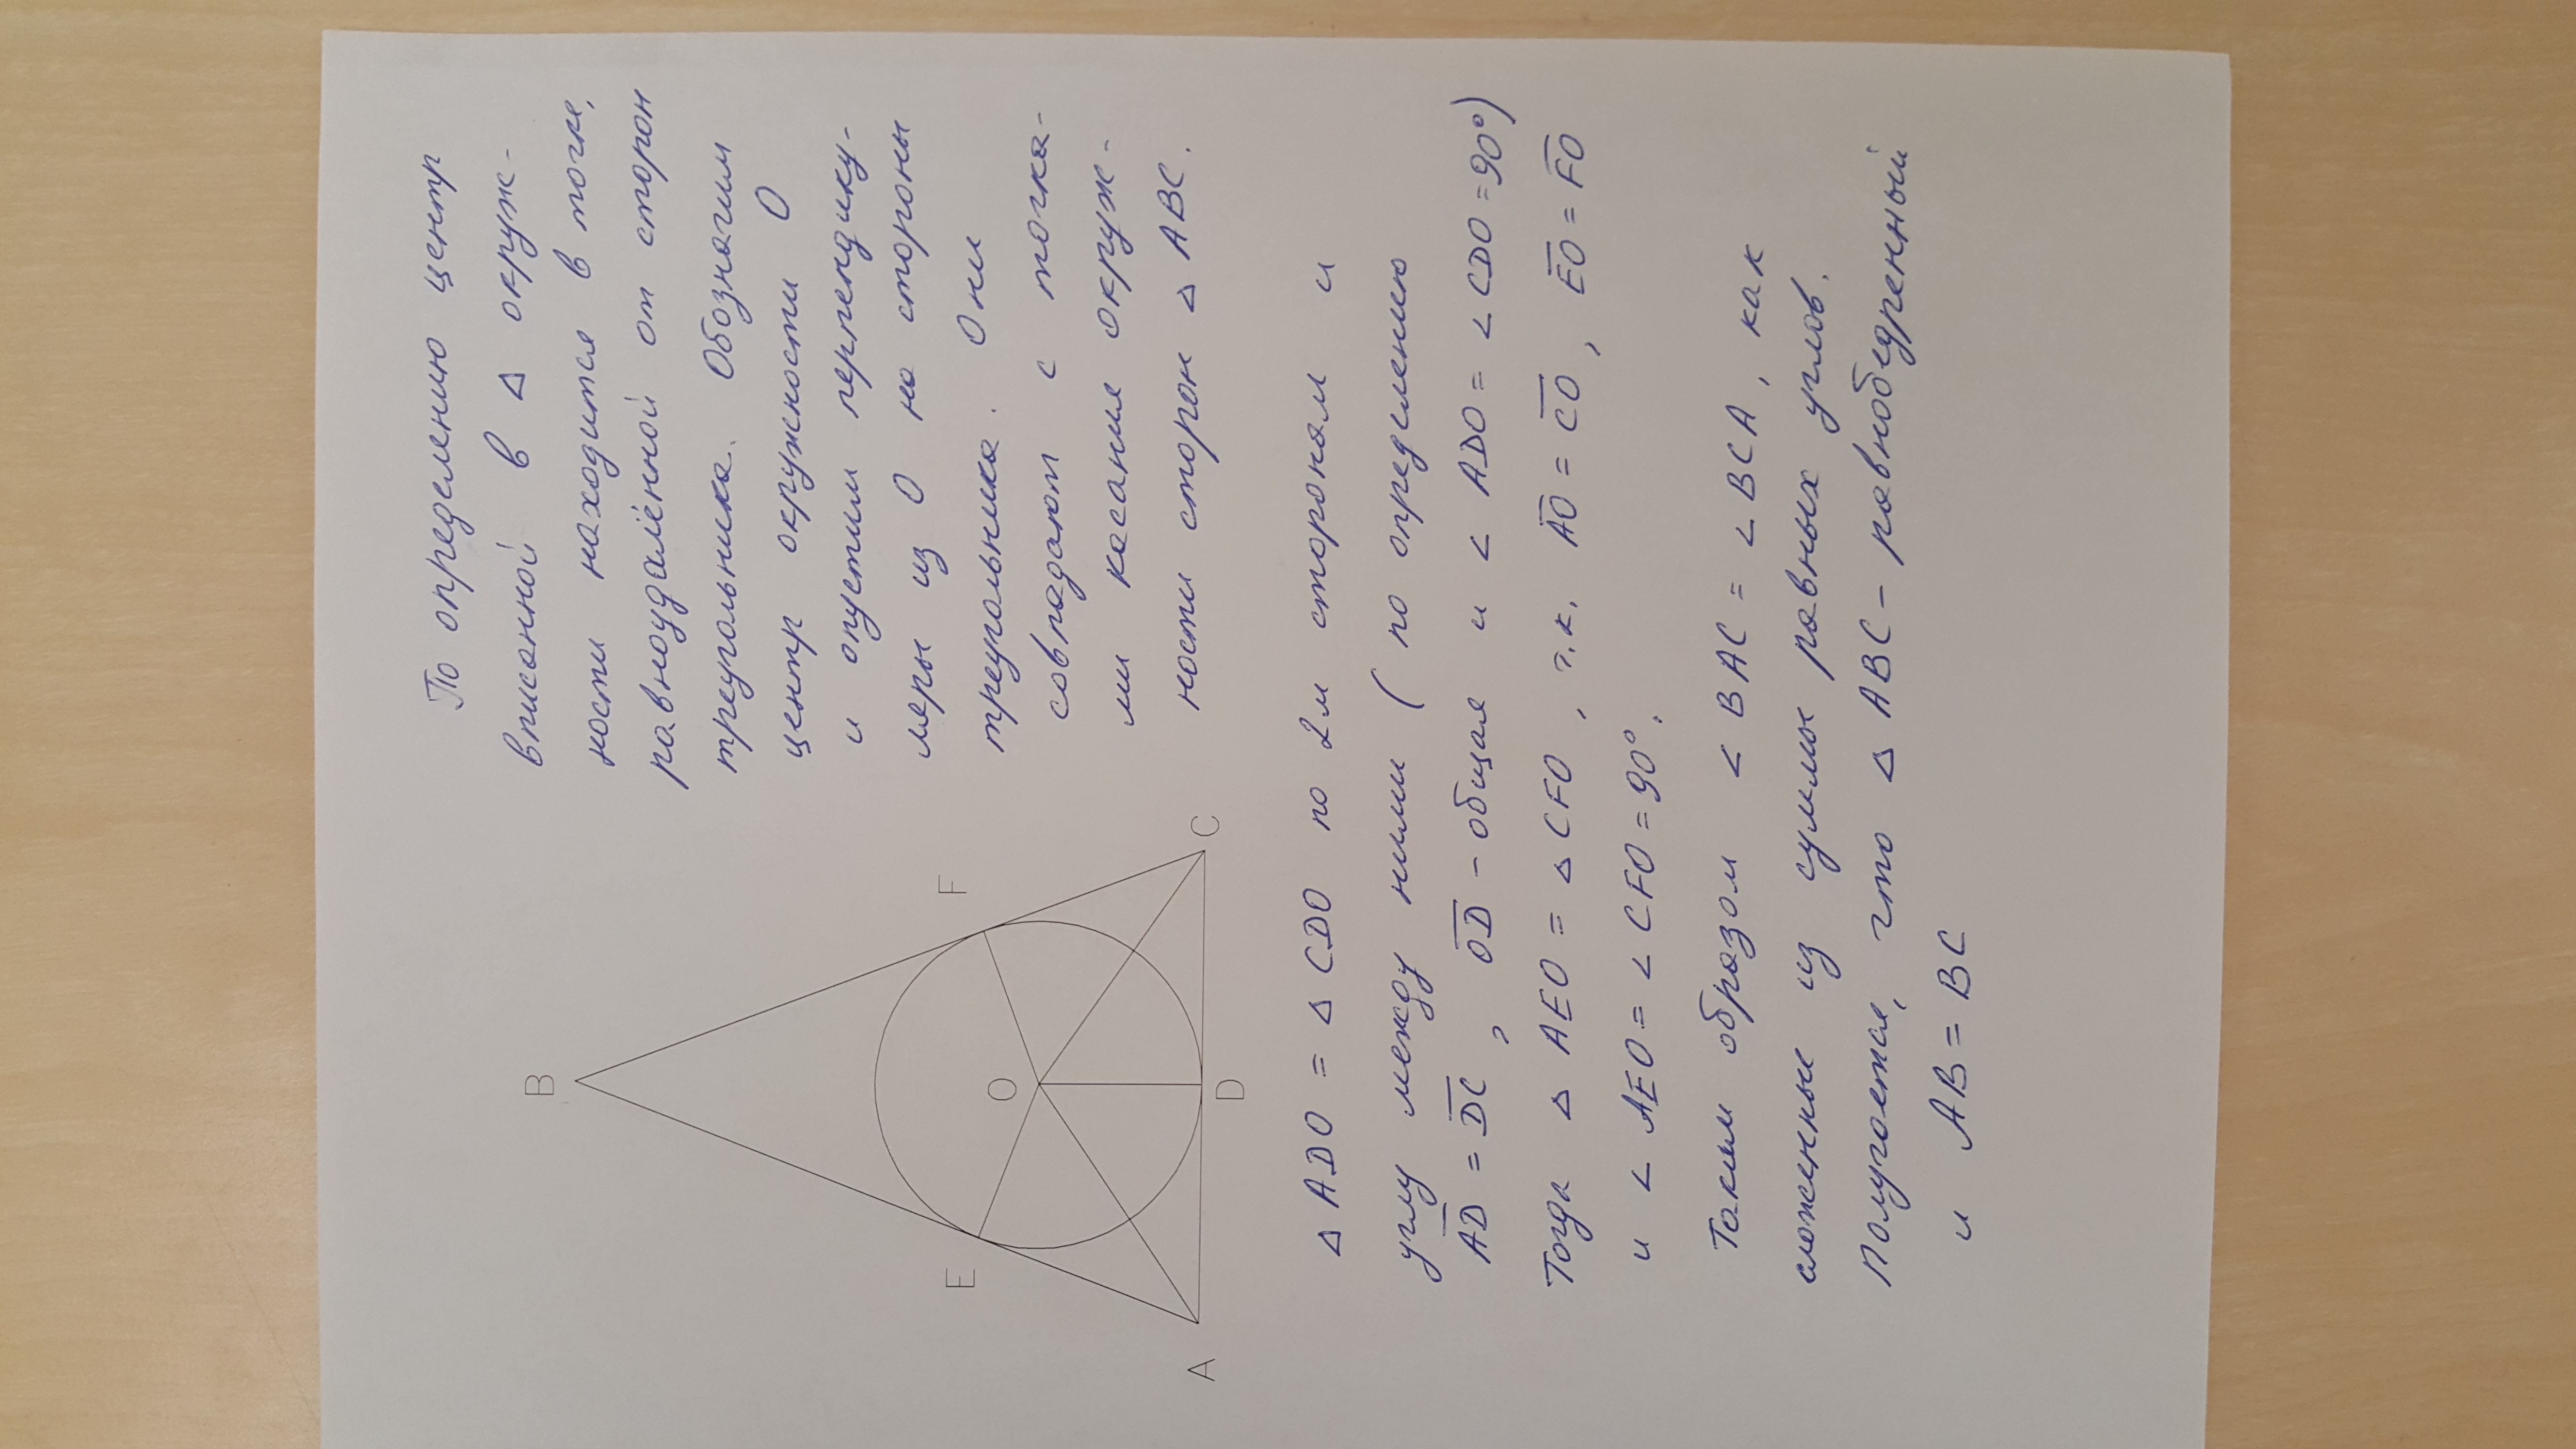 По определению центр
вписанной в △ окруж-
ности находится в точке,
равноудалённой от сторон
треугольника. Обозначим
центр окружности О
и опустим перпендику-
ляры из О на стороны
треугольника. Они
совпадают с точка-
ми касания окруж-
ности сторон △ ABC.
B
E
F
O
A
D
C
△ ADO = △ CDO по 2м сторонам и
углу между ними ( по определению
AD = DC , OD - общая и ∠ ADO = ∠ CDO = 90°)
Тогда △ AEO = △ CFO , т.к. AO = CO , EO = FO
и ∠ AEO = ∠ CFO = 90°.
Таким образом ∠ BAC = ∠ BCA , как
сложенные из суммы равных углов.
Получается, что △ ABC - равнобедренный
и AB = BC